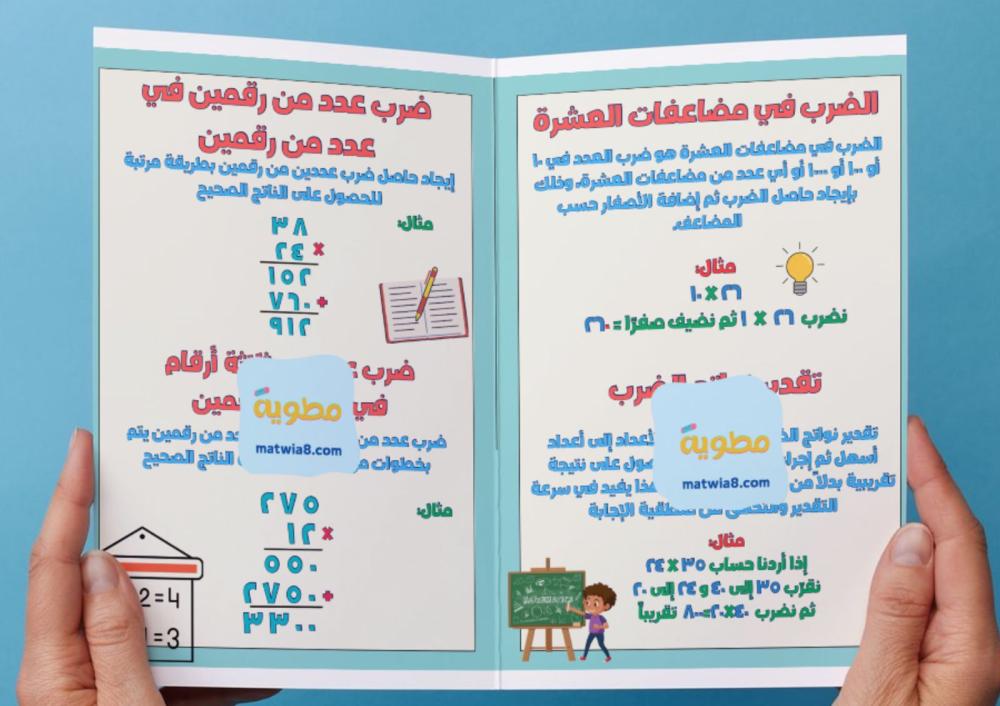 الضرب في مضاعفات العشرة
الضرب في مضاعفات العشرة هو ضرب العدد في ١٠
أو ١٠٠ أو ١٠٠٠ أو أي عدد من مضاعفات العشرة، وذلك
بإيجاد حاصل الضرب ثم إضافة الأصفار حسب
المضاعف.
مثال:
٢٦ × ١٠
نضرب ٢٦ × ١ ثم نضيف صفرًا = ٢٦٠
الضرب
مطوية
matwia8.com
تقدير نواتج
الأعداد إلى أعداد
أسهل ثم
على نتيجة
تقريبية بدلاً من
هذا يفيد في سرعة
التقدير
الإجابة
مثال:
إذا أردنا حساب ٣٥ × ٢٤
نقرّب ٣٥ إلى ٤٠ و ٢٤ إلى ٢٠
ثم نضرب ٤٠×٢٠=٨٠٠ تقريباً
ضرب عدد من رقمين في
عدد من رقمين
إيجاد حاصل ضرب عددين من رقمين بطريقة مرتبة
للحصول على الناتج الصحيح
مثال:
٣٨
× ٢٤
١٥٢
+ ٧٦٠
٩١٢
ضرب
أرقام
في
مطوية
matwia8.com
ضرب عدد من
من رقمين يتم
بخطوات
الناتج الصحيح
مثال:
٢٧٥
× ١٢
٥٥٠
+ ٢٧٥٠
٣٣٠٠
2=4
=3